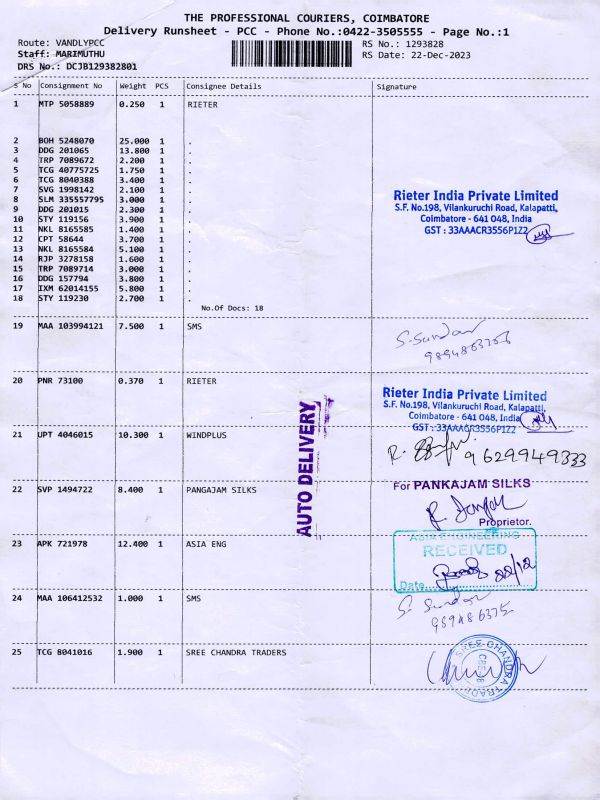 THE PROFESSIONAL COURIERS, COIMBATORE
Delivery Runsheet - PCC - Phone No.:0422-3505555 - Page No.:1
Route: VANDLYPCC
RS No.: 1293828
Staff: MARIMUTHU
RS Date: 22-Dec-2023
DRS No.: DCJB129382801
S No Consignment No Weight PCS Consignee Details Signature
1 MTP 5058889 0.250 1 RIETER
2 BOH 5248070 25.000 1 .
3 DDG 201065 13.800 1 .
4 TRP 7089672 2.200 1 .
5 TCG 40775725 1.750 1 .
6 TCG 8040388 3.400 1 .
7 SVG 1998142 2.100 1 .
8 SLM 335557795 3.000 1 .
9 DDG 201015 2.300 1 .
10 STY 119156 3.900 1 .
11 NKL 8165585 1.400 1 .
12 CPT 58644 3.700 1 .
13 NKL 8165584 5.100 1 .
14 RJP 3278158 1.600 1 .
15 TRP 7089714 3.000 1 .
16 DDG 157794 3.800 1 .
17 IXM 62014155 5.800 1 .
18 STY 119230 2.700 1 .
No.Of Docs: 18
Rieter India Private Limited
S.F. No.198, Vilankuruchi Road, Kalapatti,
Coimbatore - 641 048, India
GST : 33AAACR3556P1Z2
19 MAA 103994121 7.500 1 SMS
S. Sundar
20 PNR 73100 0.370 1 RIETER
Rieter India Private Limited
S.F. No.198, Vilankuruchi Road, Kalapatti,
Coimbatore - 641 048, India
GST : 33AAACR3556P1Z2
AUTO DELIVERY
21 UPT 4046015 10.300 1 WINDPLUS
9629949333
22 SVP 1494722 8.400 1 PANGAJAM SILKS
For PANKAJAM SILKS
Proprietor.
23 APK 721978 12.400 1 ASIA ENG
ASIA ENGINEERING
RECEIVED
Date 22/12
24 MAA 106412532 1.000 1 SMS
S. Sundar
25 TCG 8041016 1.900 1 SREE CHANDRA TRADERS
SREE CHANDRA TRADERS